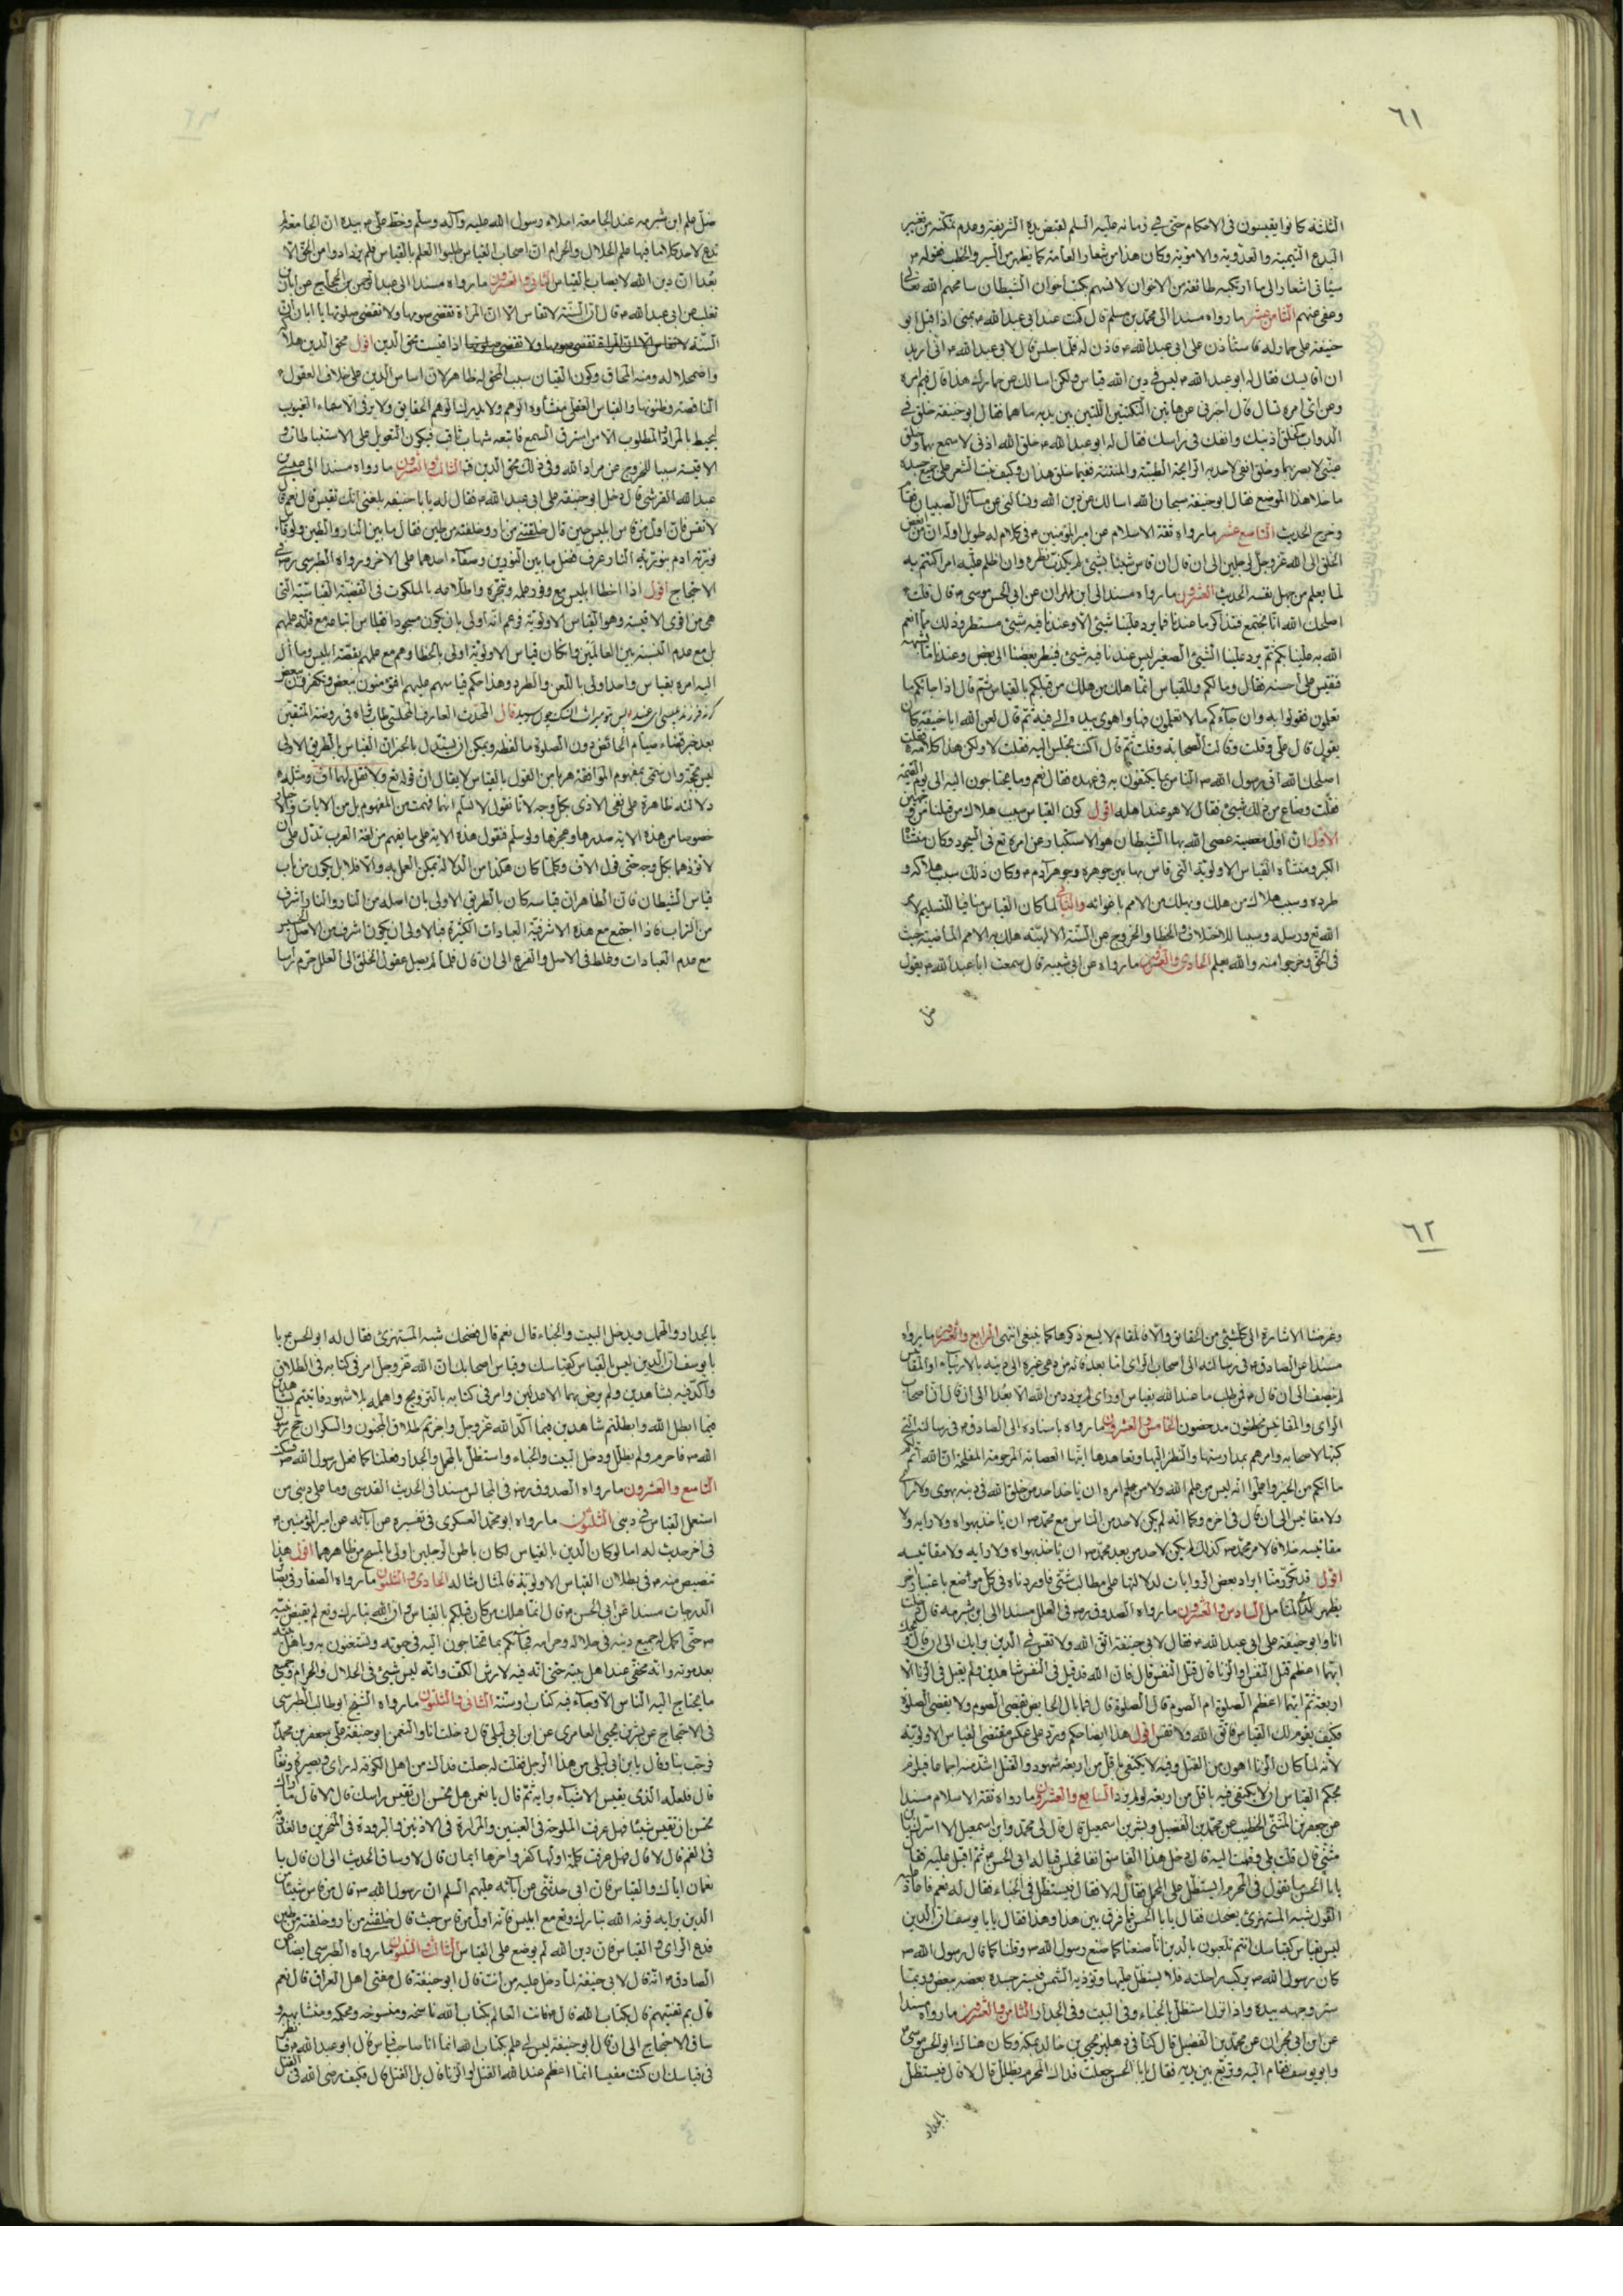 ٦١
الثلثة كانوا يقيسون فى الاحكام حتى فى زمانه عليه السلم لقبض يده الشريفة وعدم تمكنه من تغيير
البدع التيمية والعدوية والاموية وكان هذا من شعار العامة كما يظهر من السير والخطب
وعفى عنهم الثامن عشر ما رواه مسندا الى محمد بن مسلم قال كنت عند ابى عبد الله م بمنى اذا قبل ابو
حنيفة على حمار له فاستأذن على ابى عبد الله م فاذن له فلما جلس قال لابى عبد الله م انى اريد
ان اقايسك فقال له ابو عبد الله م ليس فى دين الله قياس ولكن اسالك عن حمارك هذا قال فيم امره
وعن اى امره تسال قال اخبرنى عن هاتين النكتتين اللتين بين يديه ما هما فقال ابو حنيفة خلق فى
الدواب كخلق اذنيك وانفك فى راسك فقال له ابو عبد الله م خلق الله اذنى لاسمع بهما وخلق
عينى لابصر بهما وخلق انفى لاجد به الرايحة الطيبة والمنتنة ففيما خلق هذان وكيف نبت الشعر على جميع جسده
ما خلا هذا الموضع فقال ابو حنيفة سبحان الله اسالك عن دين الله وتسالنى عن مسائل الصبيان فقام
وخرج الحديث التاسع عشر ما رواه ثقة الاسلام عن امير المؤمنين م فى كلام له طويل اوله ان من ابغض
الخلق الى الله عز وجل لرجلين الى ان قال ان قاس شيئا بشيئ لم يكذب نظره وان اظلم عليه امر اكتتم به
لما يعلم من جهل نفسه الحديث العشرون ما رواه مسندا الى ابن مهران عن ابى الحسن موسى م قال قلت
اصلحك الله انا نجتمع فنتذاكر ما عندنا فما يرد علينا شيئ الا وعندنا فيه شيئ مستطر وذلك مما انعم
الله به علينا بكم ثم يرد علينا الشيئ الصغير ليس عندنا فيه شيئ فينظر بعضنا الى بعض وعندنا ما يشبهه
فنقيس على احسنه فقال وما لكم وللقياس انما هلك من هلك من قبلكم بالقياس ثم قال اذا جائكم ما
تعلمون فقولوا به وان جاءكم ما لا تعلمون فها واهوى بيده الى فيه ثم قال لعن الله ابا حنيفة كان
يقول قال على وقلت وقالت الصحابة وقلت ثم قال اكنت تجلس اليه فقلت لا ولكن هذا كلامه فقلت
اصلحك الله اتى رسول الله ص الناس بما يكتفون به فى عهده فقال نعم وما يحتاجون اليه الى يوم القيمة
فقلت وضاع من ذلك شيئ فقال لا هو عند اهله اقول كون القياس سبب هلاك من قبلنا من وجهين
الاول ان اول معصية عصى الله بها الشيطان هو الاستكبار عن امره تع فى السجود وكان منشاه
الكبر ومنشاه القياس الاولوية التى قاس بها بين جوهره وجوهر آدم م وكان ذلك سبب هلاكه و
طرده وسبب هلاك من هلك ويهلك من الامم باغوائه والثانى لما كان القياس منافيا للتسليم لامر
الله تع ورسله وسببا للاختلاف والخطا والخروج عن السنة الالهية هلك به الامم الماضية حيث
فى الحق وخرجوا منه والله يعلم الحادى والعشرون ما رواه عن ابى شيبة قال سمعت ابا عبد الله م يقول
ضل
ضل علم ابن شبرمه عند الجامعة املاء رسول الله صلى الله عليه وآله وسلم وخط على م بيده ان الجامعة لم
تدع لاحد كلاما فيها علم الحلال والحرام ان اصحاب القياس طلبوا العلم بالقياس فلم يزدادوا من الحق الا
بعدا ان دين الله لا يصاب بالقياس الثانى والعشرون ما رواه مسندا الى عبد الرحمن بن الحجاج عن ابان بن
تغلب عن ابى عبد الله م قال ان السنة لا تقاس الا ان المراة تقضى صومها ولا تقضى صلوتها يا ابان ان
السنة اذا قيست محق الدين اقول محق الدين هلاكه
واضمحلاله ومنه المحاق وكون القياس سبب المحق له ظاهر لان اساس الدين على خلاف العقول
الناقصة وظنونها والقياس العقلى منشاؤه الوهم ولا يدرك الوهم الحقايق ولا يرقى الا سماء الغيوب
ليحيط بالمراد والمطلوب الا من استرق السمع فاتبعه شهاب ثاقب فيكون التعويل على الاستنباطات و
الاقيسة سببا للخروج عن مراد الله وفى ذلك محق الدين فيه الثالث والعشرون ما رواه مسندا الى عيسى بن
عبد الله القرشى قال دخل ابو حنيفة على ابى عبد الله م فقال له يا با حنيفة بلغنى انك تقيس قال نعم قال
لا تقس فان اول من قاس ابليس حين قال خلقتنى من نار وخلقته من طين فقاس ما بين النار والطين ولو قاس
نورية ادم بنورية النار عرف فضل ما بين النورين وصفاء احدهما على الاخر ورواه الطبرسى ره فى
الاحتجاج اقول اذا اخطا ابليس مع وفور علمه وتبحره واطلاعه بالملكوت فى القضية القياسية التى
هى من اقوى الاقيسة وهو القياس الاولوية
بل مع عدم النسبة بين العالمين وامكان قياس الاولوية اولى بالخطا وهم مع علمهم بقصة ابليس وما آل
اليه امره بقياس واحد اولى باللعن والطرد وهذا حكم قياسهم عليهم افتؤمنون ببعض وتكفرون ببعض
قال المحدث العارف المجلسى طاب ثراه فى روضة المتقين
بعد خبر قضاء صيام الحائض دون الصلوة ما لفظه ويمكن ان يستدل بالخبر ان القياس بالطريق الاولى
ليس بحجة وان سمى بمفهوم الموافقة هربا من القول بالقياس لا يقال ان قوله تع ولا تقل لهما اف ومثله
دلالته ظاهرة على نفى الاذى بكل وجه لانا نقول لا نسلم انها فهمت من المفهوم بل من الايات والاخبار
خصوصا من هذه الاية صدرها وعجزها ولو سلم فنقول هذه الاية على ما يفهم من لغة العرب تدل على ان
لا تؤذهما بكل وجه حتى قول الاف وكلما كان هكذا من الدلالة يمكن العمل به والا فلا بل يكون من باب
قياس الشيطان فان الظاهر ان قياسه كان بالطريق الاولى بان اصله من النار والنار اشرف
من التراب فاذا اجتمع مع هذه الاشرفية العبادات الكثيرة فبالاولى ان يكون اشرف من الاصل الخسيس
مع عدم العبادات وغلط فى الاصل والفرع الى ان قال فلما لم يصل عقول الخلق الى العلل حرم راسا
٦٢
وغرضنا الاشارة الى كل شيئ من الحقايق والا فالمقام لا يسع ذكرها كما ينبغى انتهى الرابع والعشرون ما رواه
مسندا عن الصادق م فى رسالته الى اصحاب الراى
لم ينصف الى ان قال م فمن طلب ما عند الله بقياس وراى لم يزدد من الله الا بعدا الى ان قال ان اصحاب
الراى والمقائيس مخطئون مدحضون الخامس والعشرون ما رواه باسناده الى الصادق م فى رسالته التى
كتبها لاصحابه وامرهم بمدارستها والنظر اليها وتعاهدها ايتها العصابة المرحومة المفلحة ان الله اتم لكم
ما اتيكم من الخير واعلموا انه ليس من علم الله ولا من علم امره ان ياخذ احد من خلق الله فى دينه بهوى ولا راى
ولا مقائيس الى ان قال فى اخره وكما انه لم يكن لاحد من الناس مع محمد ص ان ياخذ بهواه ولا رايه ولا
مقائيسه خلافا لامر محمد ص كذلك لم يكن لاحد من بعد محمد ص ان ياخذ بهواه ولا رايه ولا مقائيسه
اقول قد تكرر منا ايراد بعض الروايات لدلالتها على مطالب شتى فاوردناه فى كل مواضع باعتبار اخر
يظهر للمتامل السادس والعشرون ما رواه الصدوق ره فى العلل مسندا الى ابن شبرمه قال دخلت
انا وابو حنيفة على ابى عبد الله م فقال لابى حنيفة اتق الله ولا تقس فى الدين برايك الى ان قال و
ايهما اعظم قتل النفس او الزنا قال قتل النفس قال فان الله قد قبل فى النفس شاهدين ولم يقبل فى الزنا الا
اربعة ثم ايهما اعظم الصلوة ام الصوم قال الصلوة قال فما بال الحايض تقضى الصوم ولا تقضى الصلوة
فكيف يقوم لك القياس فاتق الله ولا تقس اقول هذا ايضا حكم ورد على عكس مقتضى القياس الاولوية
لانه لما كان الزنا اهون من القتل وفيه لا يكتفى باقل من اربعة شهود والقتل اشد منه
بحكم القياس ان لا يكتفى فيه باقل من اربعة لو لم يزد السابع والعشرون ما رواه ثقة الاسلام مسندا
عن جعفر بن المثنى الخطيب عن محمد بن الفضيل وبشر بن اسمعيل قال قال لى محمد بن اسمعيل الا اسرك يابن
مثنى قال قلت بلى وقمت اليه قال دخل هذا الفاسق انفا فجلس قباله ابى الحسن م ثم اقبل عليه فقال
يابا الحسن ما تقول فى المحرم ايستظل على المحمل فقال له لا فقال فيستظل فى الخباء فقال له نعم فاعاد عليه
القول شبه المستهزئ يضحك فقال يابا الحسن فما فرق بين هذا وهذا فقال يابا يوسف ان الدين
ليس بقياس كقياسك انتم تلعبون بالدين انا صنعنا كما صنع رسول الله ص وقلنا كما قال رسول الله ص
كان رسول الله ص يركب راحلته فلا يستظل عليها وتؤذيه الشمس فيستر جسده بعضه ببعض وربما
ستر وجهه بيده واذا نزل استظل بالخباء وفى البيت وفى الجدار الثامن والعشرون ما رواه مسندا
عن ابن ابى نجران عن محمد بن الفضيل قال كنا فى دهليز يحيى بن خالد بمكة وكان هناك ابو الحسن موسى م
وابو يوسف فقام اليه وتربع بين يديه فقال يابا الحسن جعلت فداك المحرم يظلل قال لا قال فيستظل
بالجدار
بالجدار والمحمل ويدخل البيت والخباء قال نعم قال فضحك شبه المستهزئ فقال له ابو الحسن م يا
با يوسف ان الدين ليس بالقياس كقياسك وقياس اصحابك ان الله عز وجل امر فى كتابه فى الطلاق
واكد فيه بشاهدين ولم يرض بهما الا عدلين وامر فى كتابه بالتزويج واهمله بلا شهود فاتيتم بشاهدين
فيما ابطل الله وابطلتم شاهدين فيما اكد الله عز وجل واجزتم طلاق المجنون والسكران حج رسول
الله ص فاحرم ولم يظلل ودخل البيت والخباء واستظل بالمحمل والجدار ففعلنا كما فعل رسول الله ص فسكت
التاسع والعشرون ما رواه الصدوق ره فى المجالس مسندا فى الحديث القدسى وما على دينى من
استعمل القياس فى دينى الثلثون ما رواه ابو محمد العسكرى فى تفسيره عن آبائه عن امير المؤمنين م
فى اخر حديث له اما لو كان الدين بالقياس لكان باطن الرجلين اولى بالمسح من ظاهرهما اقول هذا
تنصيص منه م فى بطلان القياس الاولوية فالمثال مثاله الحادى والثلثون ما رواه الصفار فى بصائر
الدرجات مسندا عن ابى الحسن م قال انما هلك من كان قبلكم بالقياس وان الله تبارك وتع لم يقبض نبيه
ص حتى اكمل له جميع دينه فى حلاله وحرامه فجاءكم بما تحتاجون اليه فى حيوته وتستغنون به وباهل بيته
بعد موته وانه مخفى عند اهل بيته حتى انه فيه لارش الكف وانه ليس شيئ فى الحلال والحرام وجميع
ما يحتاج اليه الناس الا وجاء فيه كتاب او سنة الثانى والثلثون ما رواه الشيخ ابو طالب الطبرسى
فى الاحتجاج عن بشر بن يحيى العامرى عن ابن ابى ليلى قال دخلت انا والنعمن ابو حنيفة على جعفر بن محمد
فرحب بنا وقال يابن ابى ليلى من هذا الرجل فقلت له جعلت فداك من اهل الكوفة له راى وبصيرة ونفاذ
قال فلعله الذى يقيس الاشياء برايه ثم قال يا نعمن هل تحسن ان تقيس راسك قال لا قال ما اراك
تحسن ان تقيس شيئا فهل عرفت الملوحة فى العينين والمرارة فى الاذنين والبرودة فى المنخرين والعذوبة
فى الفم قال لا قال فهل عرفت كلمة اولها كفر واخرها ايمان قال لا وساق الحديث الى ان قال يا
نعمان اياك والقياس فان ابى حدثنى عن آبائه عليهم السلم ان رسول الله ص قال من قاس شيئا من
الدين برايه قرنه الله تبارك وتع مع ابليس فانه اول من قاس حيث قال خلقتنى من نار وخلقته من طين
فدع الراى والقياس فان دين الله لم يوضع على القياس الثالث والثلثون ما رواه الطبرسى ايضا عن
الصادق م انه قال لابى حنيفة لما دخل عليه من انت قال ابو حنيفة قال مفتى اهل العراق قال نعم
قال بم تفتيهم قال بكتاب الله قال م فانت العالم بكتاب الله ناسخه ومنسوخه ومحكمه ومتشابهه و
ساق الاحتجاج الى ان قال ابو حنيفة ليس لى علم بكتاب الله انما انا صاحب قياس قال ابو عبد الله م فانظر
فى قياسك ان كنت مقيسا ايما اعظم عند الله القتل او الزنا قال بل القتل قال فكيف رضى الله فى القتل